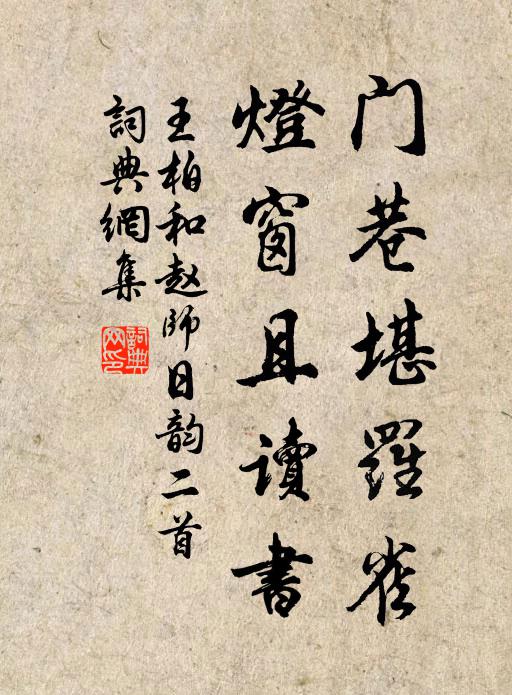 门巷堪羅雀
燈窗且讀書
王柏和赵師日韵二首
詞典網集
詞典网印